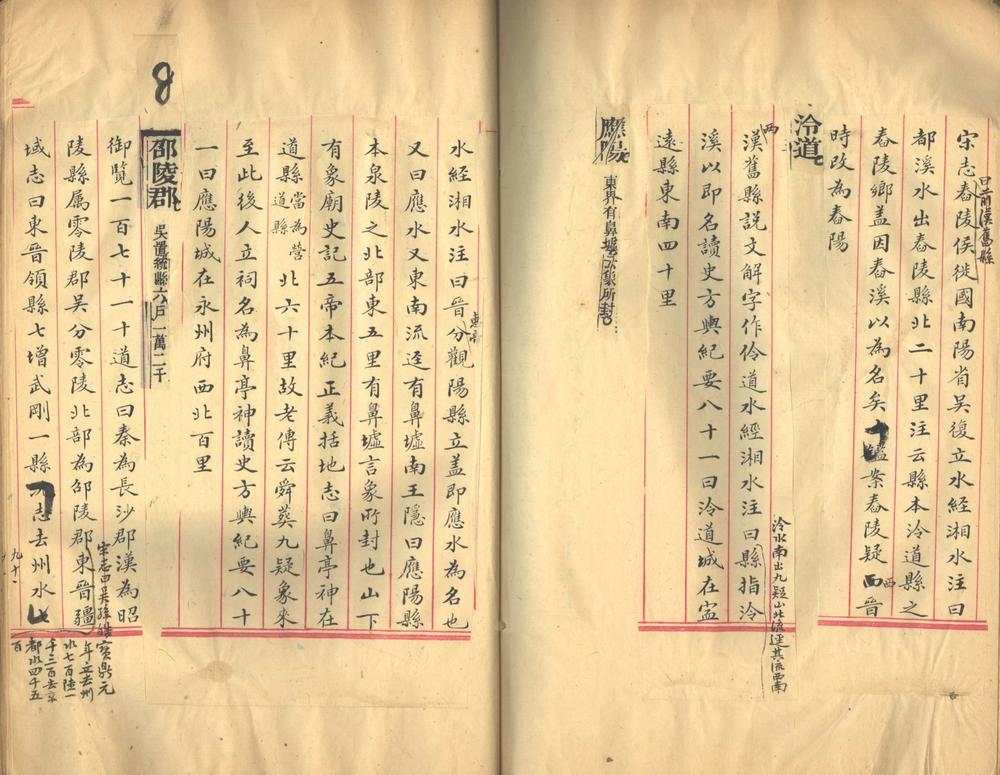 宋志舂陵侯徙國南陽省吳復立水經湘水注曰
前漢舊縣
都溪水出舂陵縣北二十里注云縣本泠道縣之
舂陵鄉蓋因舂溪以為名矣鑑案舂陵疑西晉
西
時改為舂陽
泠道
漢舊縣說文解字作伶道水經湘水注曰縣指泠
西
泠水南出九疑山北流逕其流西南
溪以即名讀史方輿紀要八十一曰泠道城在寧
遠縣東南四十里
應陽
東界有鼻墟言象所封
水經湘水注曰晉分觀陽縣立蓋即應水為名也
東晉
又曰應水又東南流逕有鼻墟南王隱曰應陽縣
本泉陵之北部東五里有鼻墟言象所封也山下
有象廟史記五帝本紀正義括地志曰鼻亭神在
道縣當為營道縣北六十里故老傳云舜葬九疑象來
至此後人立祠名為鼻亭神讀史方輿紀要八十
一曰應陽城在永州府西北百里
8
邵陵郡
吳置統縣六戶一萬二千
御覽一百七十一十道志曰秦為長沙郡漢為昭
陵縣屬零陵郡吳分零陵北部為邵陵郡東晉疆
域志曰東晉領縣七增武剛一縣志去州水
宋志曰吳孫皓寶鼎元
年立去州
水七百陸一
千三百去京
都水四千五
百